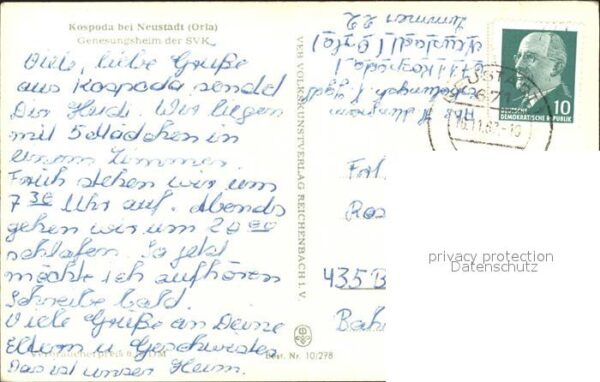 Kospoda bei Neustadt (Orla)
Genesungsheim der SVK
Viele, liebe Grüße
aus Kospoda sendet
Dir Heidi. Wir liegen
mit 5 Mädchen in
einem Zimmer.
Früh stehen wir um
7 30 Uhr auf. Abends
gehen wir um 20 00
schlafen. So jetzt
möchte ich aufhören
Schreibe bald.
Viele Grüße an Deine
Eltern u Geschwister
Das ist unser Heim.
Verbraucherpreis
Best. Nr. 10/278
VEB VOLKSKUNSTVERLAG REICHENBACH I. V.
Zimmer 22
Neustadt (Orla)
6711 Kospoda
DEUTSCHE
DEMOKRATISCHE REPUBLIK
10
NEUSTADT
Frl.
Ros
435 B
Bah
privacy protection
Datenschutz